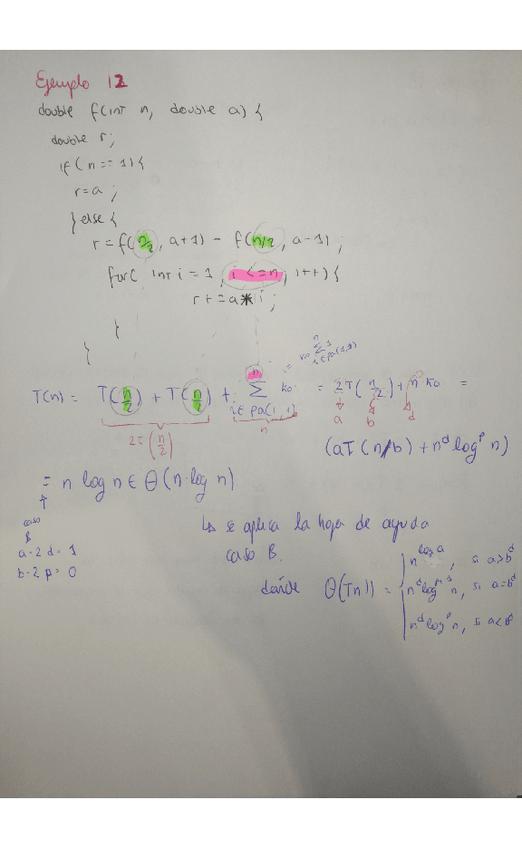 Ejemplo 12
double f(int n, double a) {
double r;
if (n == 1) {
r = a ;
} else {
r = f(n/2, a+1) - f(n/2, a-1) ;
for( int i = 1, i <= n, i++) {
r += a * i ;
}
}
T(n) = T(n/2) + T(n/2) + n∑i∈pa(1,1) k₀ = 2T(n/2) + n k₀ =
= k₀ n∑i∈pa(1,1) 1
2 = (n/2)
n
a b d
(aT(n/b) + n^d log^p n)
= n log n ∈ Θ(n·log n)
caso
B
a=2 d=1
b=2 p=0
↳ se aplica la hoja de ayuda
caso B.
donde Θ(Tn)) = { n^log a , si a>b^d
n^d log^p+1 n, si a=b^d
n^d log^p n, si a<b^d